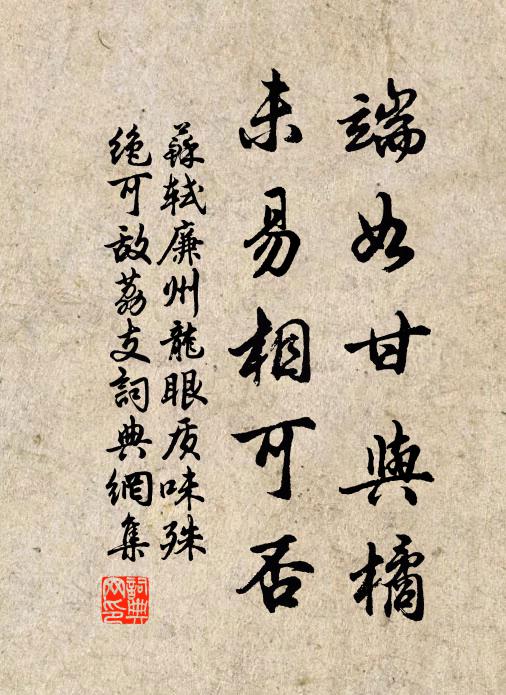 端如甘與橘
未易相可否
蘇軾廉州龍眼质味殊
绝可敌荔支詞典網集
詞典
网印